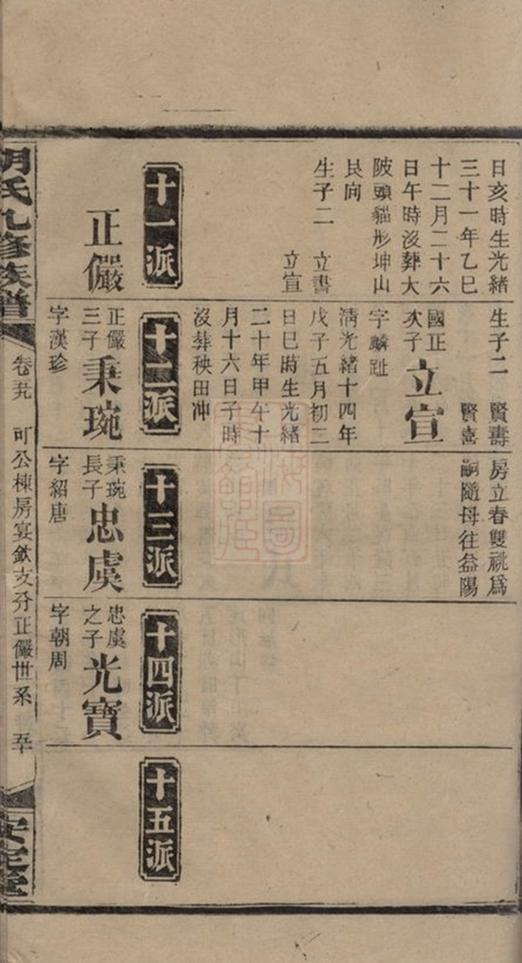 日亥時生光緒
三十一年乙巳
十二月二十六
日午時沒葬大
陂頭貓形坤山
艮向
生子二 立書
立宣
十一派
正儼
生子二 賢壽
賢
國正
次子
立宣
字麟趾
淸光緒十四年
戊子五月初二
日巳時生光緒
二十年甲午十
月十六日子時
沒葬秧田冲
十二派
正儼
三子
秉琬
字漢珍
房立春雙祧爲
嗣隨母往益陽
十三派
秉琬
長子
忠虞
字紹唐
十四派
忠虞
之子
光寶
字朝周
十五派
胡氏九修族譜
可公棟房宴欽支分正儼世系
安定堂